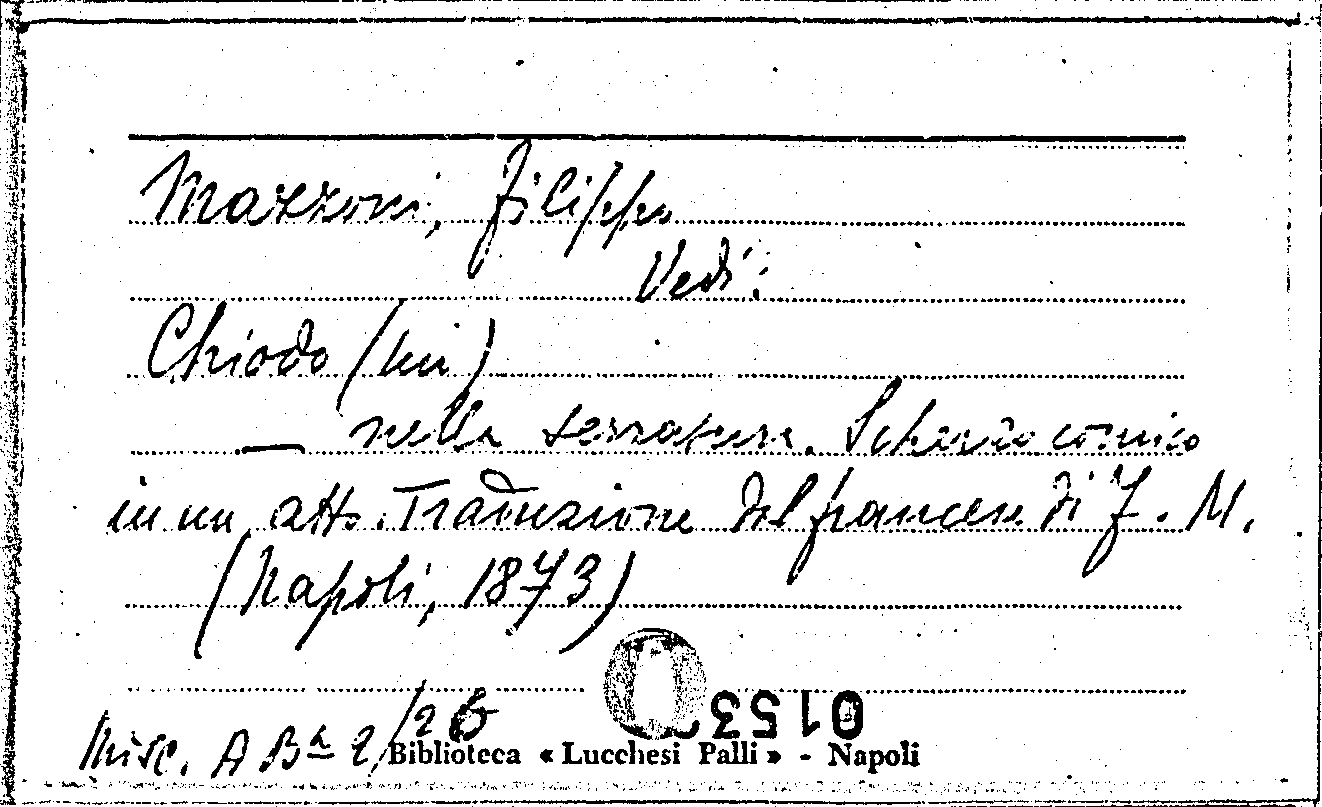 Mazzoni, Filippo
Vedi:
Chiodo (un)
— nella serratura. Scherzo comico
in un atto. Traduzione del francese di F. M.
(Napoli, 1873)
0153
Misc. A Ba 2/26
Biblioteca « Lucchesi Palli » - Napoli